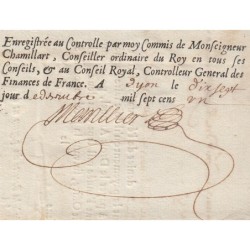 Enregistrée au Controlle par moy Commis de Monseigneur
Chamillart, Conseiller ordinaire du Roy en tous ses
Conseils, & au Conseil Royal, Controlleur General des
Finances de France. A Dyon le dixsept
jour d mil sept cens un